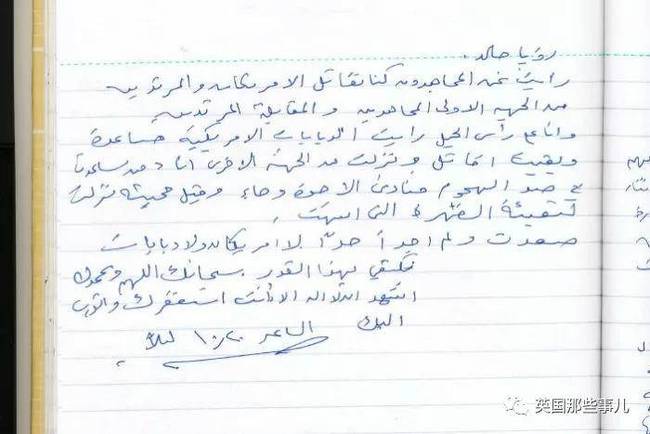 رؤيا خالد.
رأيت نحن المجاهدون كنا نقاتل الامريكان والمرتدين
من الجهة الاولى المجاهدين والمقابلة المرتدين
وانا على رأس الجبل رأيت الدبابات الامريكية صاعدة
وبقيت اقاتل ونزلت من الجهة الاخرى انادي من يساعدنا
في صد الهجوم فنادى الاخوة وجاء وقبل مجيئه نزلت
لتعبئة
صعدت ولم اجد احداً لا امريكان ولا دبابات
نكتفي بهذا القدر سبحانك اللهم وبحمدك
اشهد ان لا اله الا أنت استغفرك واتوب
اليك الساعة ١٠:٢٠ ليلاً
英国那些事儿